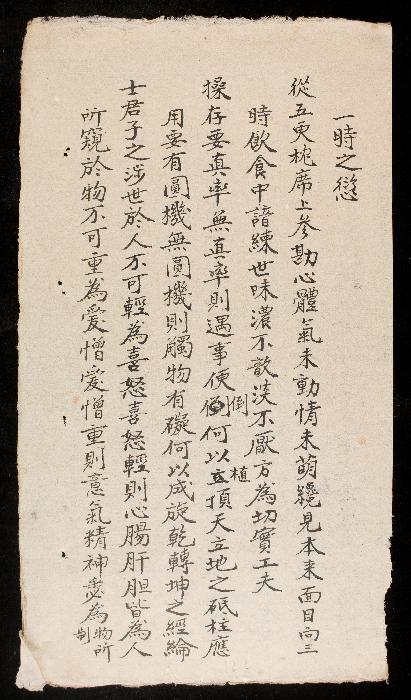 一時之愆
從五更枕席上參勘心體氣未動情未萌纔見本来面目向三
時飲食中諳練世味濃不歆淡不厭方為切實工夫
操存要真率無真率則遇事便倒何以植頂天立地之砥柱應
用要有圓機無圓機則觸物有礙何以成旋乾轉坤之經綸
士君子之涉世於人不可輕為喜怒喜怒輕則心腸肝胆皆為人
所窺於物不可重為愛憎愛憎重則意氣精神悉為物所制